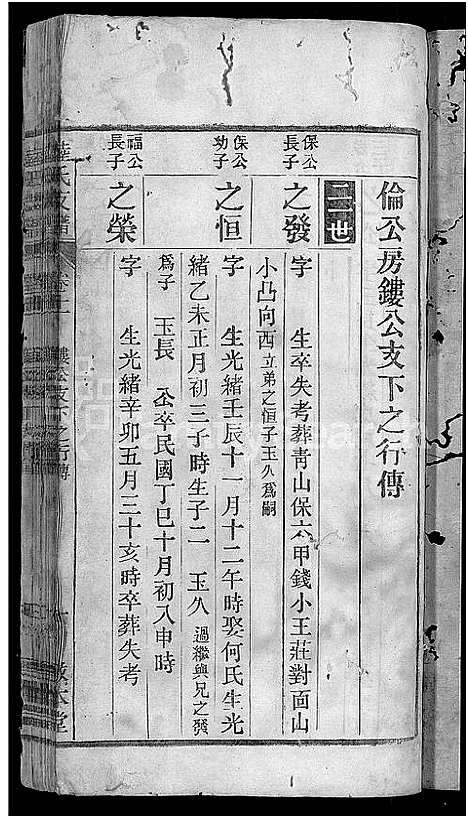 倫公房鏤公支下之行傳
二世
保公長子
之發
字　生卒失考葬青山保六甲錢小王莊對面山
小凸向西立弟之恒子玉久爲嗣
保公幼子
之恒
字　生光緒壬辰十一月十二午時娶何氏生光
緒乙未正月初三子時生子二　玉久　過繼與兄之發
爲子　玉長　公卒民國丁巳十月初八申時
福公長子
之榮
字　生光緒辛卯五月三十亥時卒葬失考
氏支譜
鏤公支下之行傳
本堂